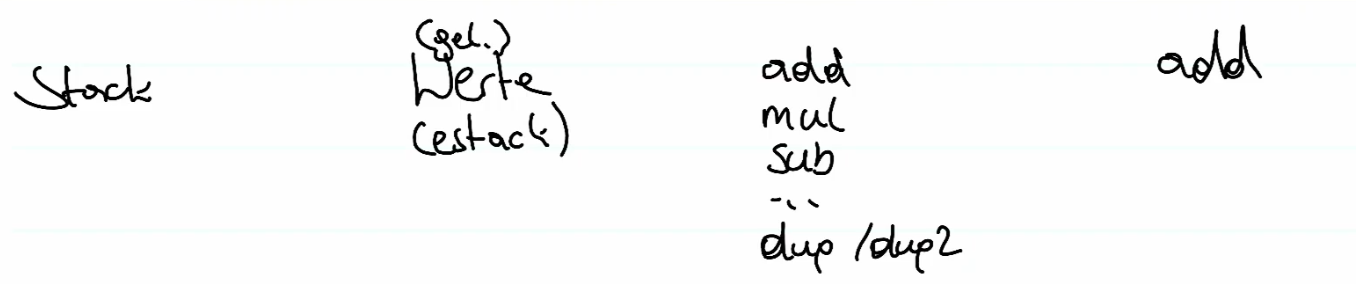 Stack
(gel.)
Werte
(estack)
add
mul
sub
...
dup /dup2
add